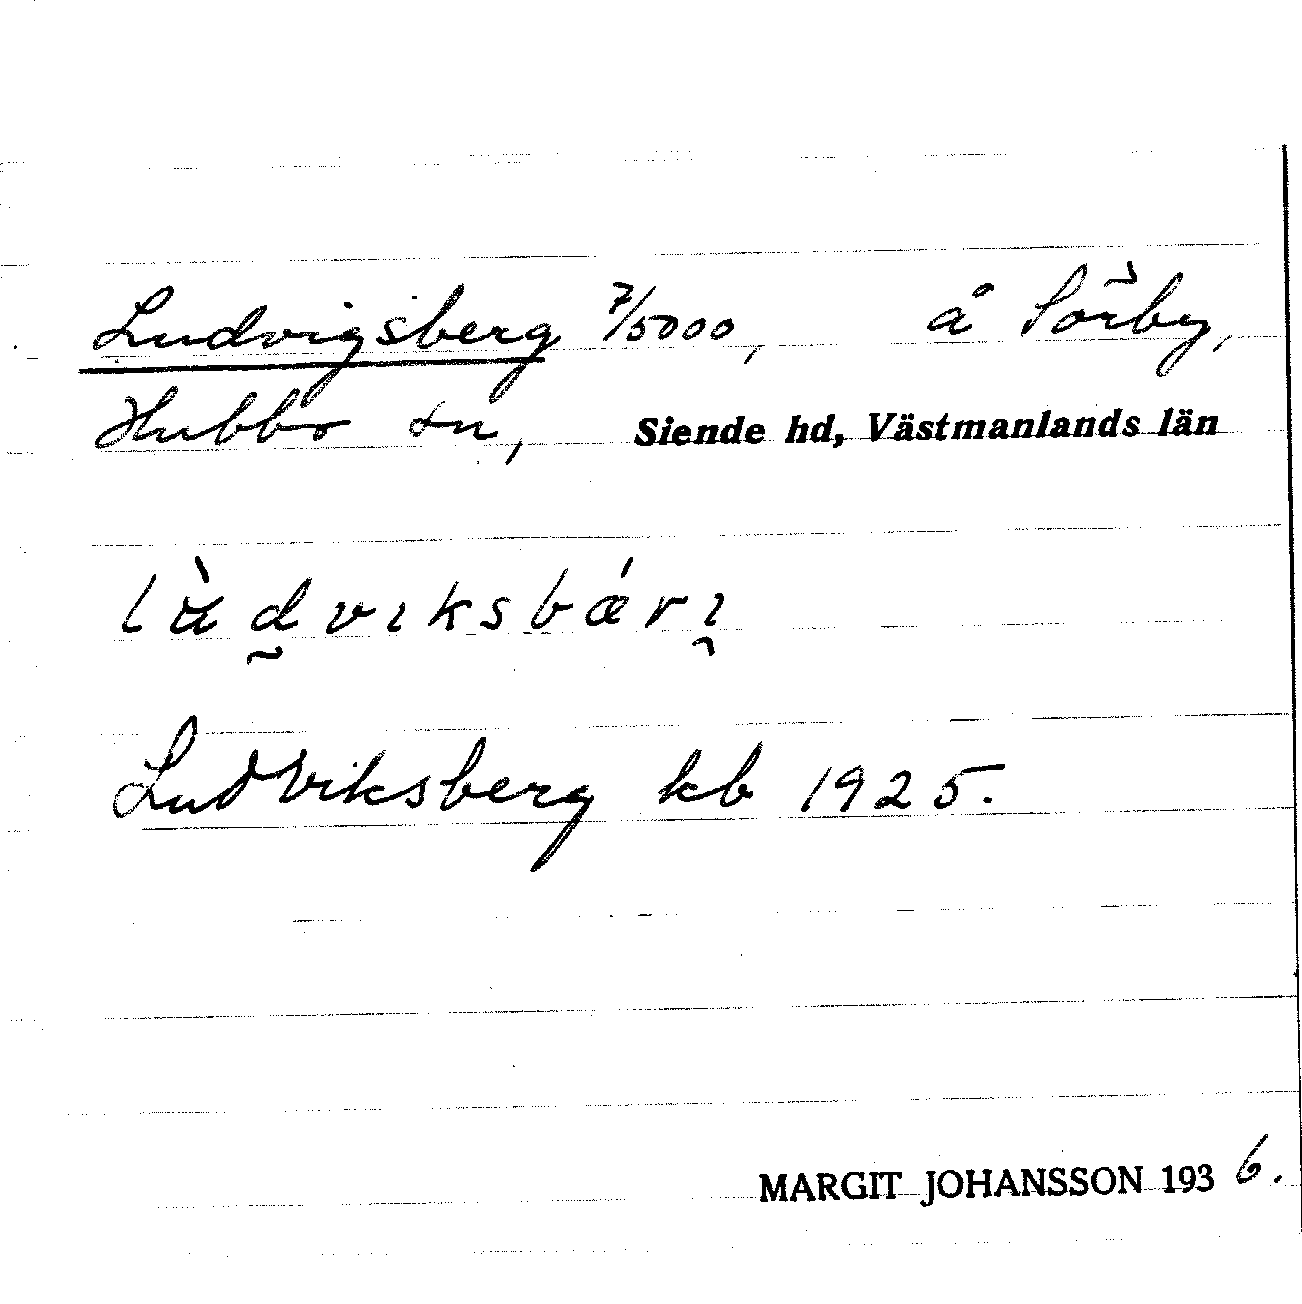 Ludvigsberg 7/5000, å Sörby,
Hubbo sn, Siende hd, Västmanlands län
lùdvıksbǽrı̯
Ludviksberg kb 1925.
MARGIT JOHANSSON 1936.